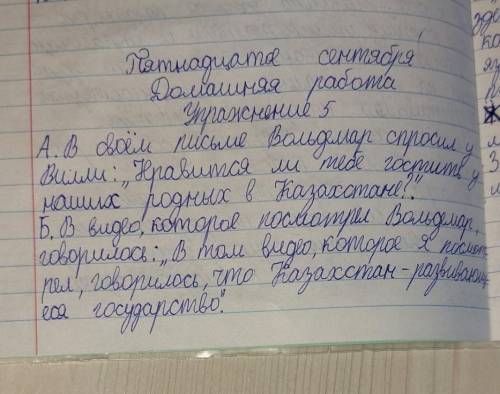 Пятнадцатое сентября
Домашняя работа
Упражнение 5
А. В своём письме Вольдемар спросил у
Вилли: „Нравится ли тебе гостить у
наших родных в Казахстане?".
Б. В видео, которое посмотрел Вольдемар,
говорилось: „В том видео, которое я посмот
рел, говорилось, что Казахстан - развивающе
еся государство".